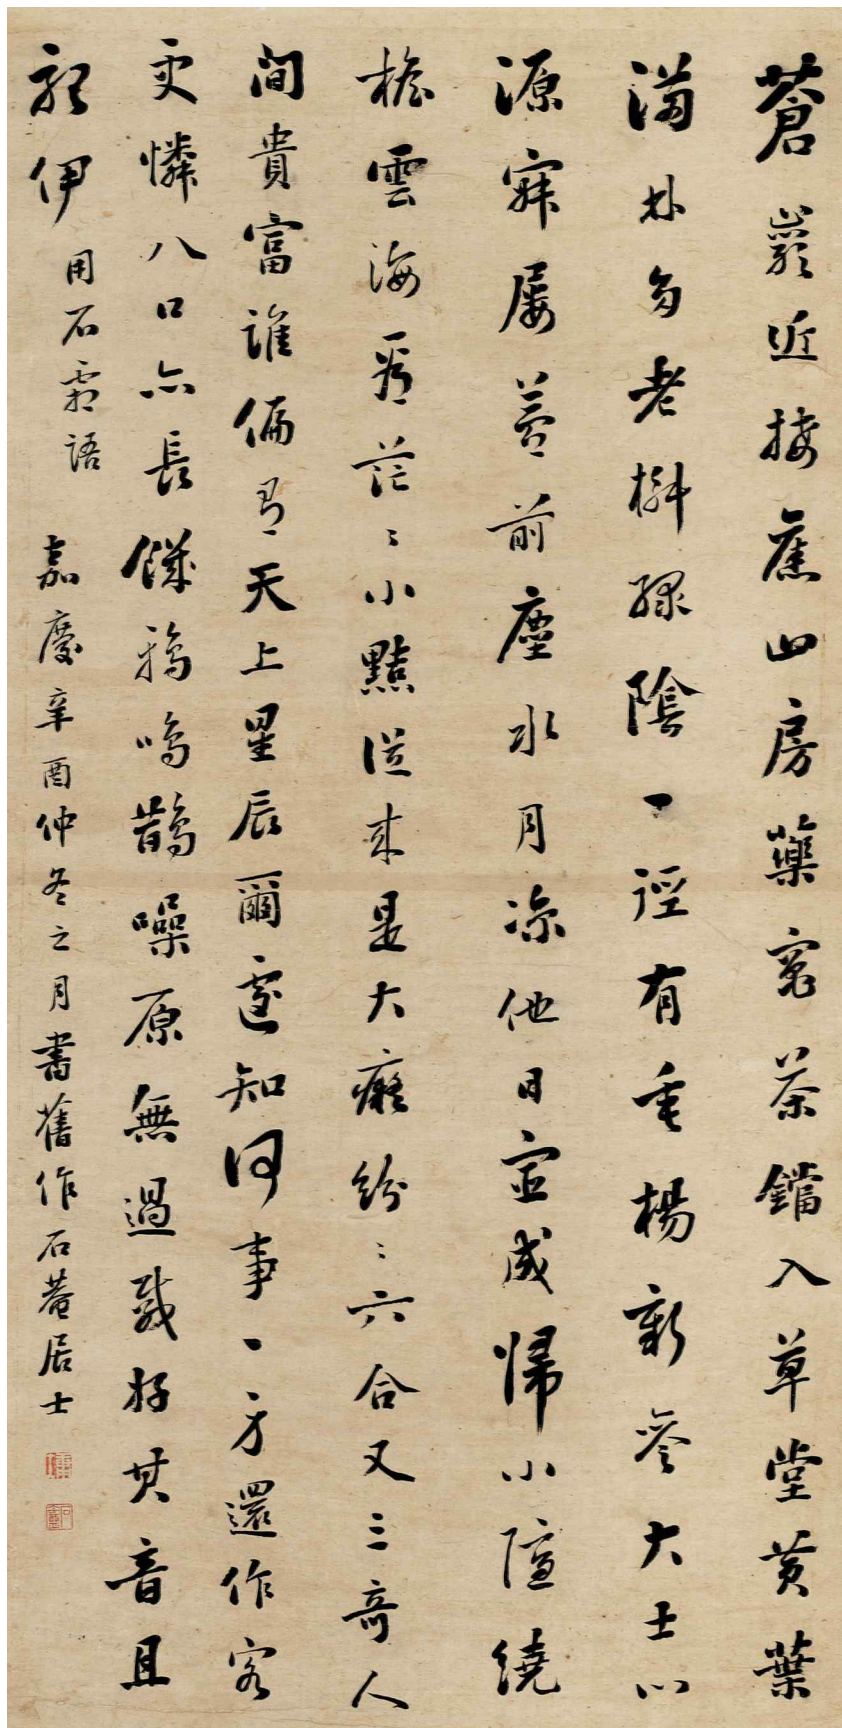 蒼巖近接舊山房藥竃茶鐺入草堂黄葉
滿林多老槲綠陰一逕有垂楊新參大士心
源寂屢蓋前塵水月涼他日定成歸小隱繞
檐雲海看茫〻小點從來是大癡紛〻六合又三奇人
間貴富誰備有天上星辰爾遽知何事一方還作客
更憐八口亦長饑鴉鳴鵲噪原無過厭好其音且
聽伊用石霜語 嘉慶辛酉仲冬之月書舊作石菴居士